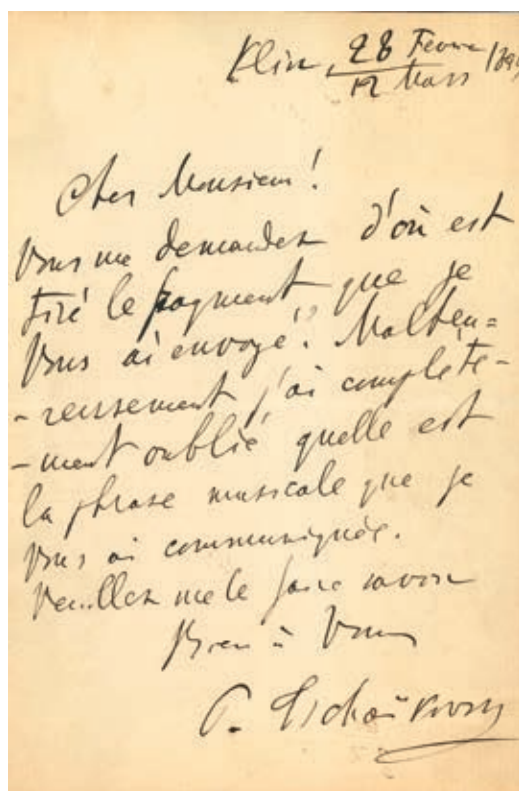 Klin, 28 Fevrier
12 Mars 189
Cher Monsieur!
Vous me demandez d'où est
tiré le fragment que je
Vous ai envoyé? Malheu=
-reusement j'ai complète-
-ment oublié quelle est
la phrase musicale que je
Vous ai communiquée.
Veuillez me le faire savoir
Bien à Vous
P. Tschaïkovsky